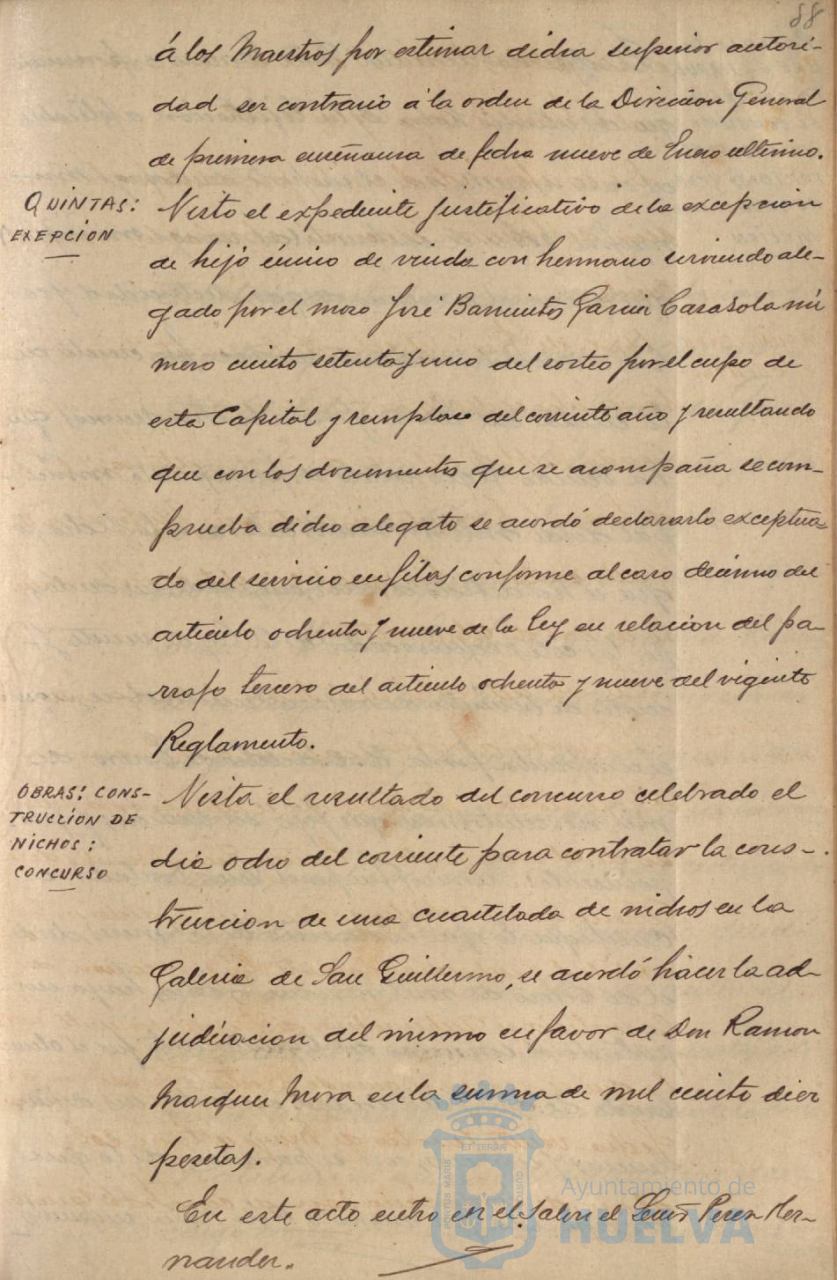 88
á los Maestros por estimar dicha superior autori-
dad ser contrario á la orden de la Direccion General
de primera enseñanza de fecha nueve de Enero ultimo.
QUINTAS:
EXEPCIÓN
Visto el expediente justificativo de la excepcion
de hijo único de viuda con hermano sirviendo ale-
gado por el mozo José Barrientos Garcia Carasola nú
mero ciento setenta y uno del sorteo por el cupo de
esta Capital y remplazo del corriente año y resultando
que con los documentos que se acompaña se com-
prueba dicho alegato se acordó declararlo exceptua-
do del servicio en filas conforme al caso décimo del
articulo ochenta y nueve de la ley en relacion del pa-
rrafo tercero del articulo ochenta y nueve del vigente
Reglamento.
OBRAS: CONS-
TRUCCIÓN DE
NICHOS:
CONCURSO
Vista el resultado del concurso celebrado el
dia ocho del corriente para contratar la cons-
truccion de una cuartelada de nichos en la
Galeria de San Guillermo, se acordó hacer la ad-
judicacion del mismo en favor de Don Ramon
Marquez Mora en la suma de mil ciento diez
pesetas.
En este acto entro en el Salon el Señor Perez Her-
nandez.
Ayuntamiento de
HUELVA